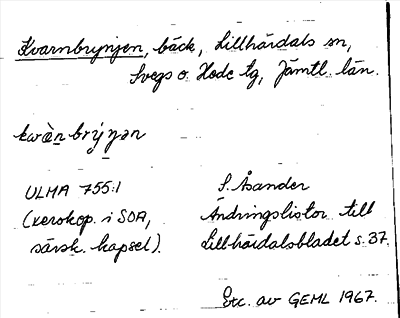 Kvarnbrynjen, bäck, Lillhärdals sn,
Svegs o. Hede tg, Jämtl. län.
kwὲn brýnən
ULMA 755:1
(xerokop. i SOA,
särsk. kapsel).
S. Åsander
Ändringslistor till
Lillhärdalsbladet s. 37.
Exc. av GEML 1967.